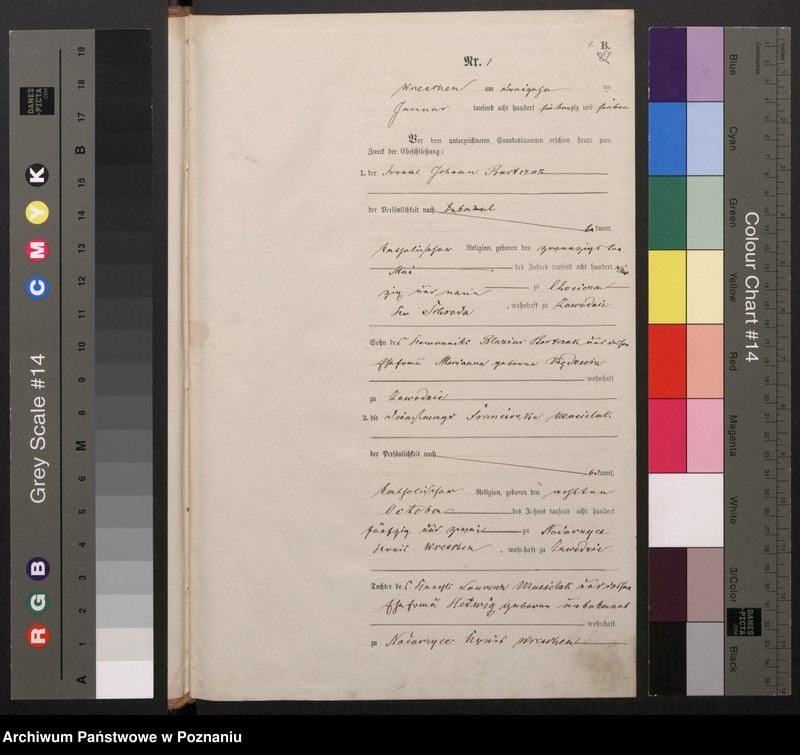 B.
Nr. 1
Wreschen am
Januar tausend acht hundert siebenzig und sieben
Vor dem unterzeichneten Standesbeamten erschien heute zum
Zweck der Eheschließung:
1. der Johann Bartczak
der Persönlichkeit nach bekannt
bekannt,
katholischer Religion, geboren den
Mai des Jahres tausend acht hundert vier
zig und neun zu
Schroda, wohnhaft zu Zawodzie
Sohn des Blasius Bartczak und dessen
Ehefrau Marianna geborene
wohnhaft
zu Zawodzie
2. die Franciszka Musielak
der Persönlichkeit nach
bekannt,
katholischer Religion, geboren den achten
October des Jahres tausend acht hundert
fünfzig und zwei zu Nadarzyce
Kreis Wreschen, wohnhaft zu Zawodzie
Tochter des Knechts Laurenz Musielak und dessen
Ehefrau Hedwig geborene unbekannt
wohnhaft
zu Nadarzyce Kreis Wreschen
Grey Scale #14
Colour Chart #14
DANES-PICTA
.COM
A 1 2 3 4 5 6 M 8 9 10 11 12 13 14 15 B 17 18 19
R G B
C M Y K
Blue
Cyan
Green
Yellow
Red
Magenta
White
3/Color
Black
Centimetres
Inches
DANES-PICTA
.COM
Archiwum Państwowe w Poznaniu